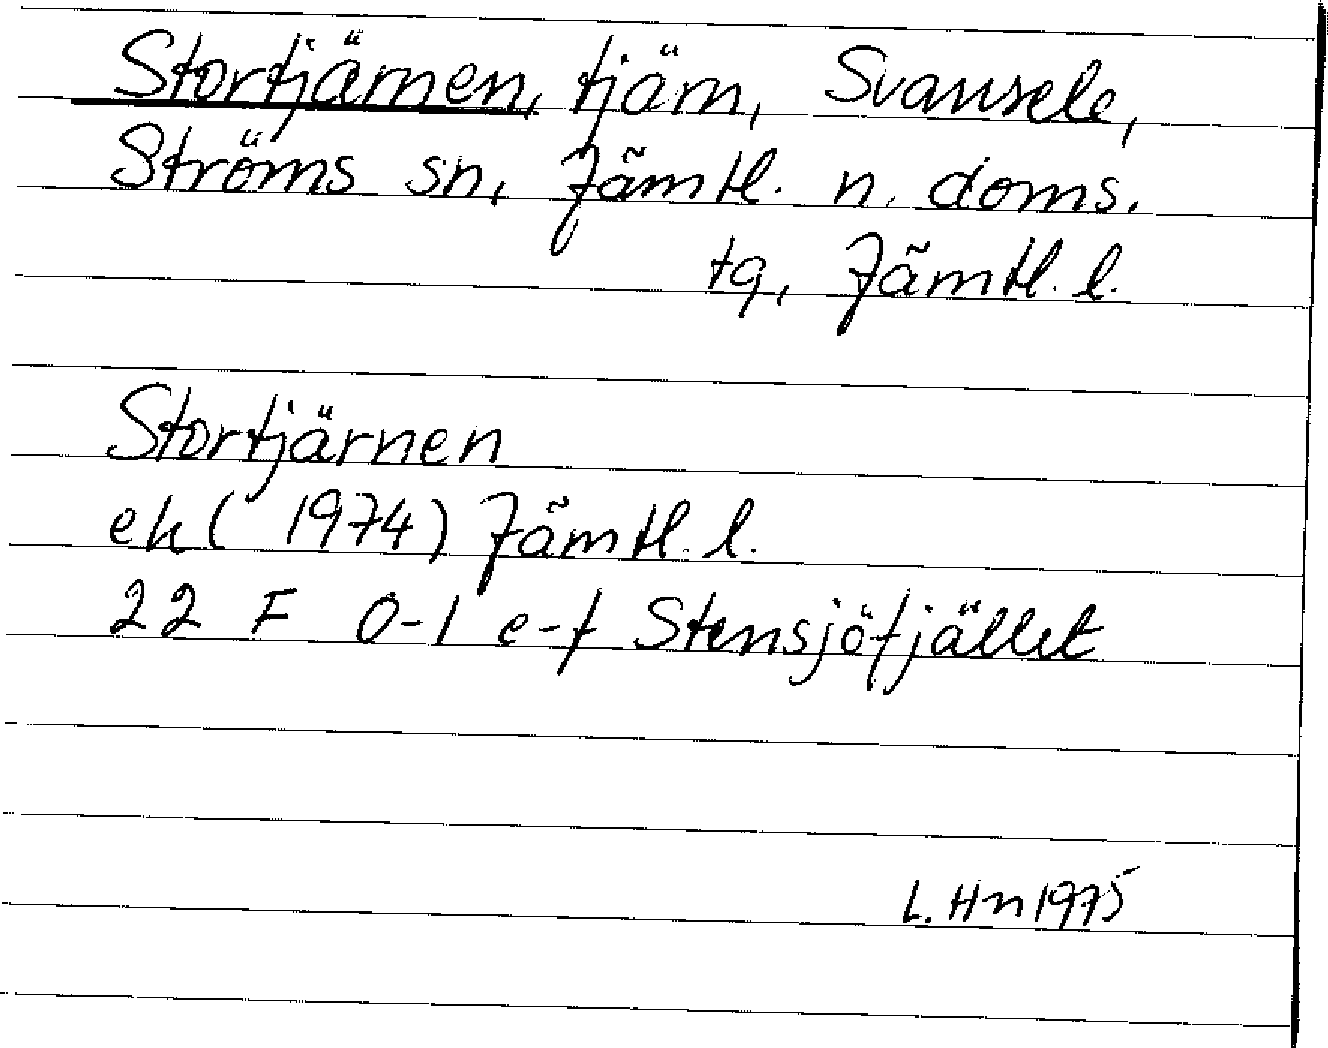 Stortjärnen, tjärn, Svansele,
Ströms sn, Jämtl. n. doms.
tg, Jämtl. l.
Stortjärnen
ek (1974) Jämtl. l.
22 F 0-1 e-f Stensjöfjället
L. Hn 1975